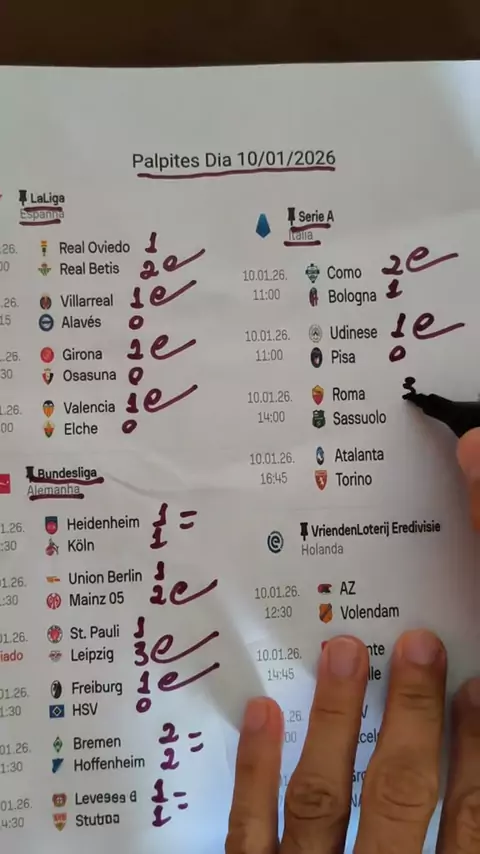 Palpites Dia 10/01/2026
LaLiga
Espanha
.26.
Real Oviedo 1
00
Real Betis 2
.26.
Villarreal 1
15
Alavés 0
.26.
Girona 2
30
Osasuna 0
1.26.
Valencia 1
00
Elche 0
Bundesliga
Alemanha
1.26.
Heidenheim 1 =
:30
Köln 1
01.26.
Union Berlin 1
1:30
Mainz 05 2
01.26.
St. Pauli 1
iado
Leipzig 3
01.26.
Freiburg 1
1:30
HSV 0
01.26.
Bremen 2 =
1:30
Hoffenheim 2
01.26.
1 =
4:30
1
Serie A
Itália
10.01.26.
Como 2
11:00
Bologna 1
10.01.26.
Udinese 1
11:00
Pisa 0
10.01.26.
Roma 3
14:00
Sassuolo
10.01.26.
Atalanta
16:45
Torino
VriendenLoterij Eredivisie
Holanda
10.01.26.
AZ
12:30
Volendam
10.01.26.
nte
14:45
lle
.26.
00